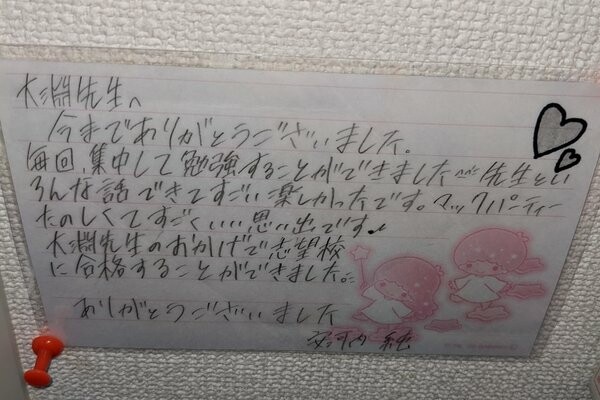 大淵先生へ
今までありがとうございました。
毎回、集中して勉強することができました 先生とい
ろんな話できてすごい楽しかったです。マックパーティー
たのしくてすごくいい思い出です♪
大淵先生のおかげで志望校
に合格することができました。
ありがとうございました